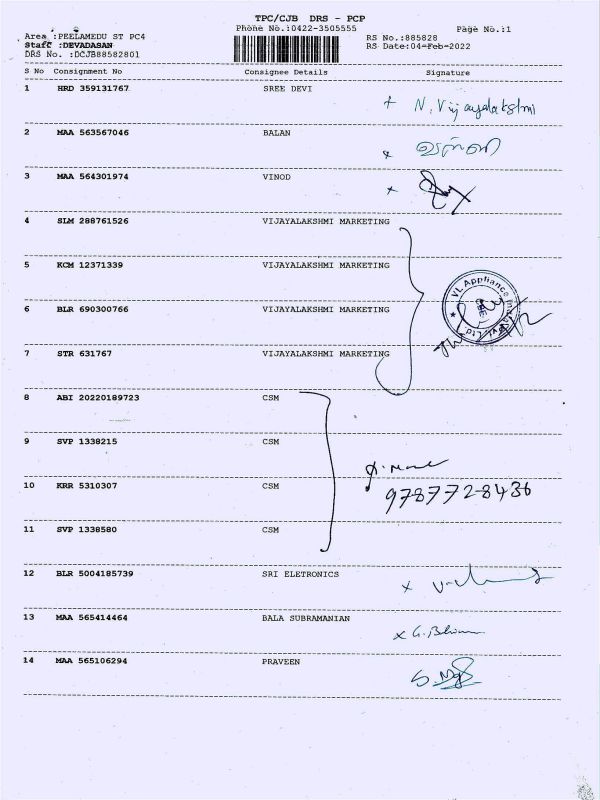 TPC/CJB DRS - PCP
Phone No.:0422-3505555 Page No.:1
Area :PEELAMEDU ST PC4
RS No.:885828
Staff :DEVADASAN
RS Date:04-Feb-2022
DRS No. :DCJB88582801
S No Consignment No Consignee Details Signature
1 HRD 359131767 SREE DEVI
N. Vijayalakshmi
2 MAA 563567046 BALAN
3 MAA 564301974 VINOD
4 SLM 288761526 VIJAYALAKSHMI MARKETING
5 KCM 12371339 VIJAYALAKSHMI MARKETING
VL Appliance
6 BLR 690300766 VIJAYALAKSHMI MARKETING
7 STR 631767 VIJAYALAKSHMI MARKETING
8 ABI 20220189723 CSM
9 SVP 1338215 CSM
10 KRR 5310307 CSM
9787728436
11 SVP 1338580 CSM
12 BLR 5004185739 SRI ELETRONICS
13 MAA 565414464 BALA SUBRAMANIAN
14 MAA 565106294 PRAVEEN